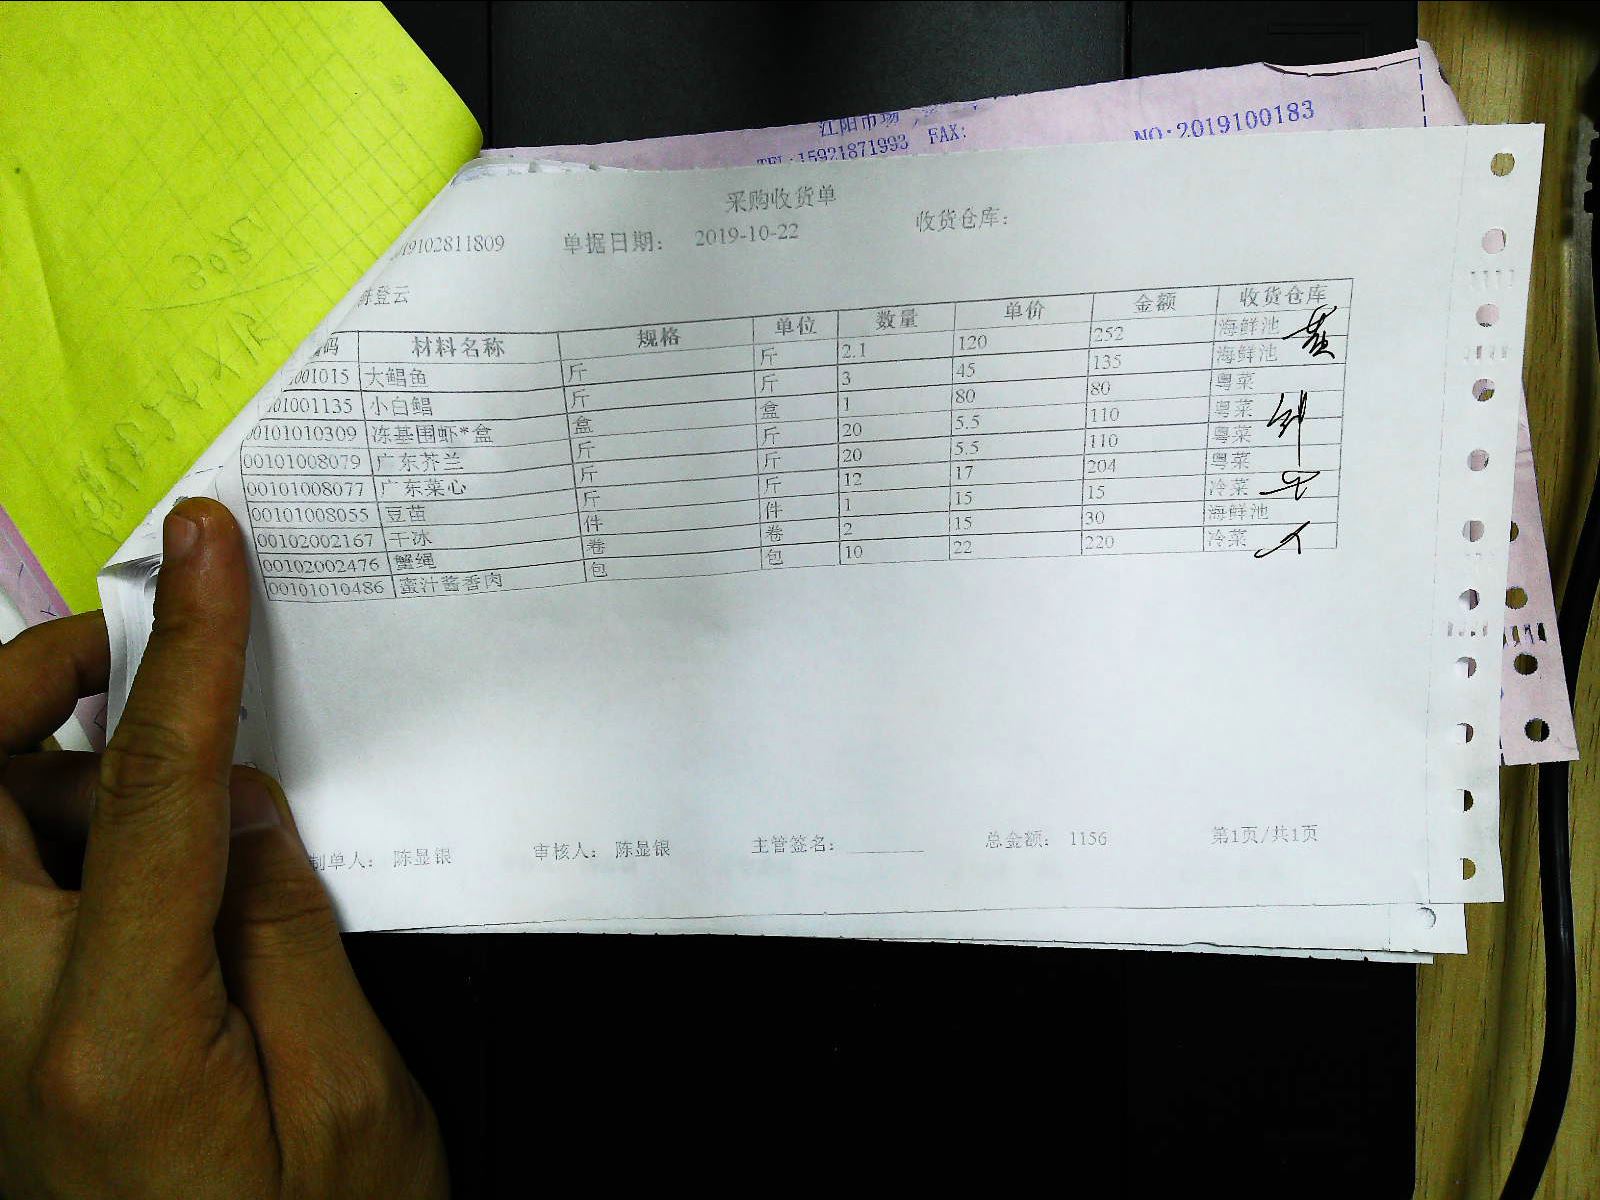 江阳市场
TEL:15921871993 FAX:
NO:2019100183
采购收货单
19102811809 单据日期: 2019-10-22 收货仓库:
登云
码 材料名称 规格 单位 数量 单价 金额 收货仓库
001015 大鲳鱼 斤 斤 2.1 120 252 海鲜池
01001135 小白鲳 斤 斤 3 45 135 海鲜池
00101010309 冻基围虾*盒 盒 盒 1 80 80 粤菜
00101008079 广东芥兰 斤 斤 20 5.5 110 粤菜
00101008077 广东菜心 斤 斤 20 5.5 110 粤菜
00101008055 豆苗 斤 斤 12 17 204 粤菜
00102002167 干冰 件 件 1 15 15 冷菜
00102002476 蟹绳 卷 卷 2 15 30 海鲜池
00101010486 蜜汁酱香肉 包 包 10 22 220 冷菜
制单人: 陈显银 审核人: 陈显银 主管签名: 总金额: 1156 第1页/共1页